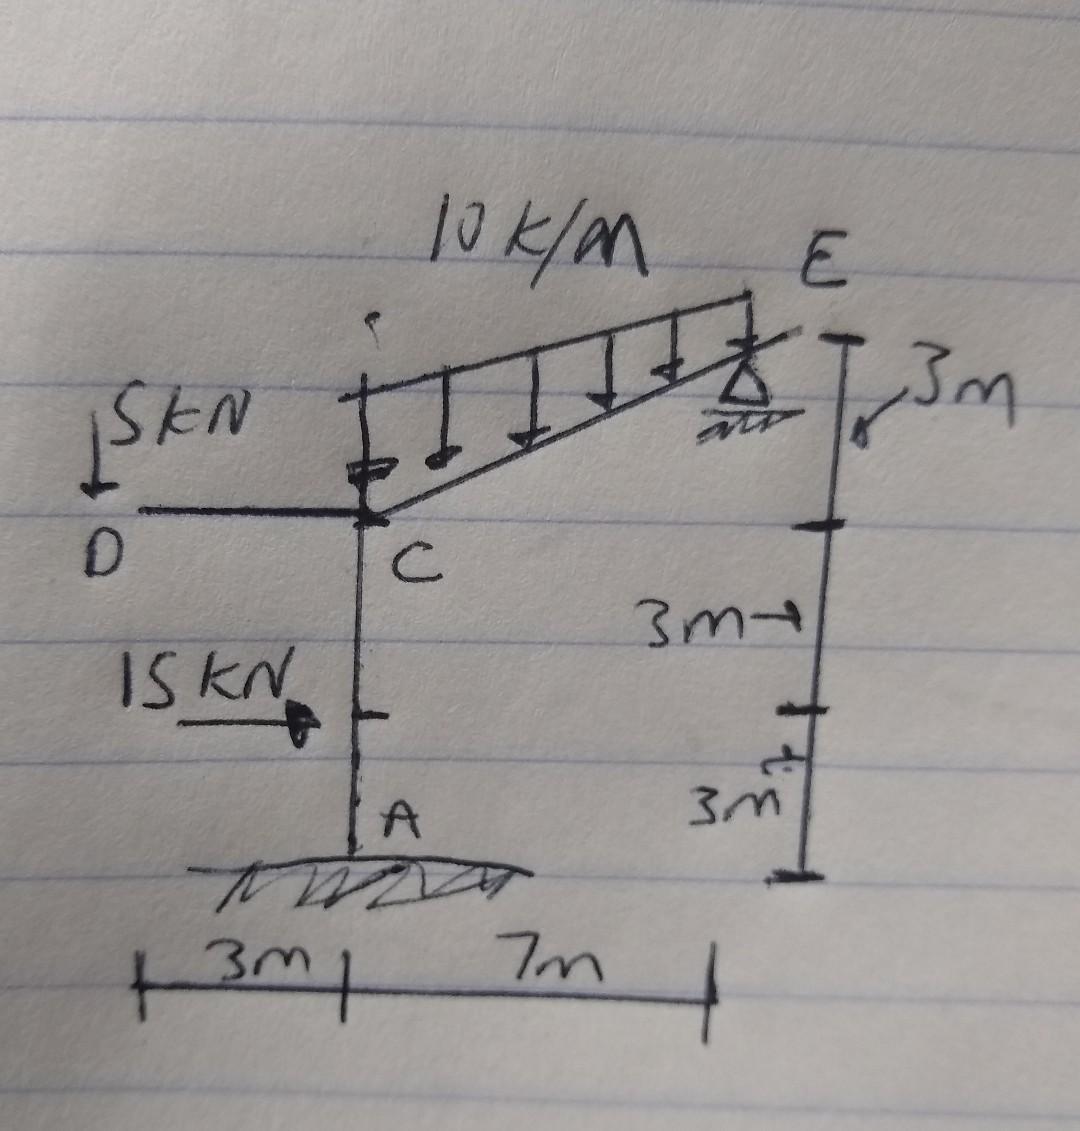 10 k/m
E
5 KN
3m
D
C
3m
15 KN
3m
A
3m
7m